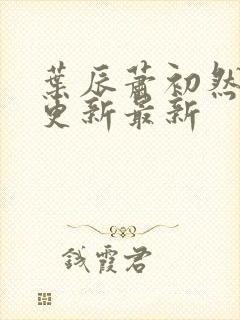 葉辰蕭初然
更新最新
錢霞君